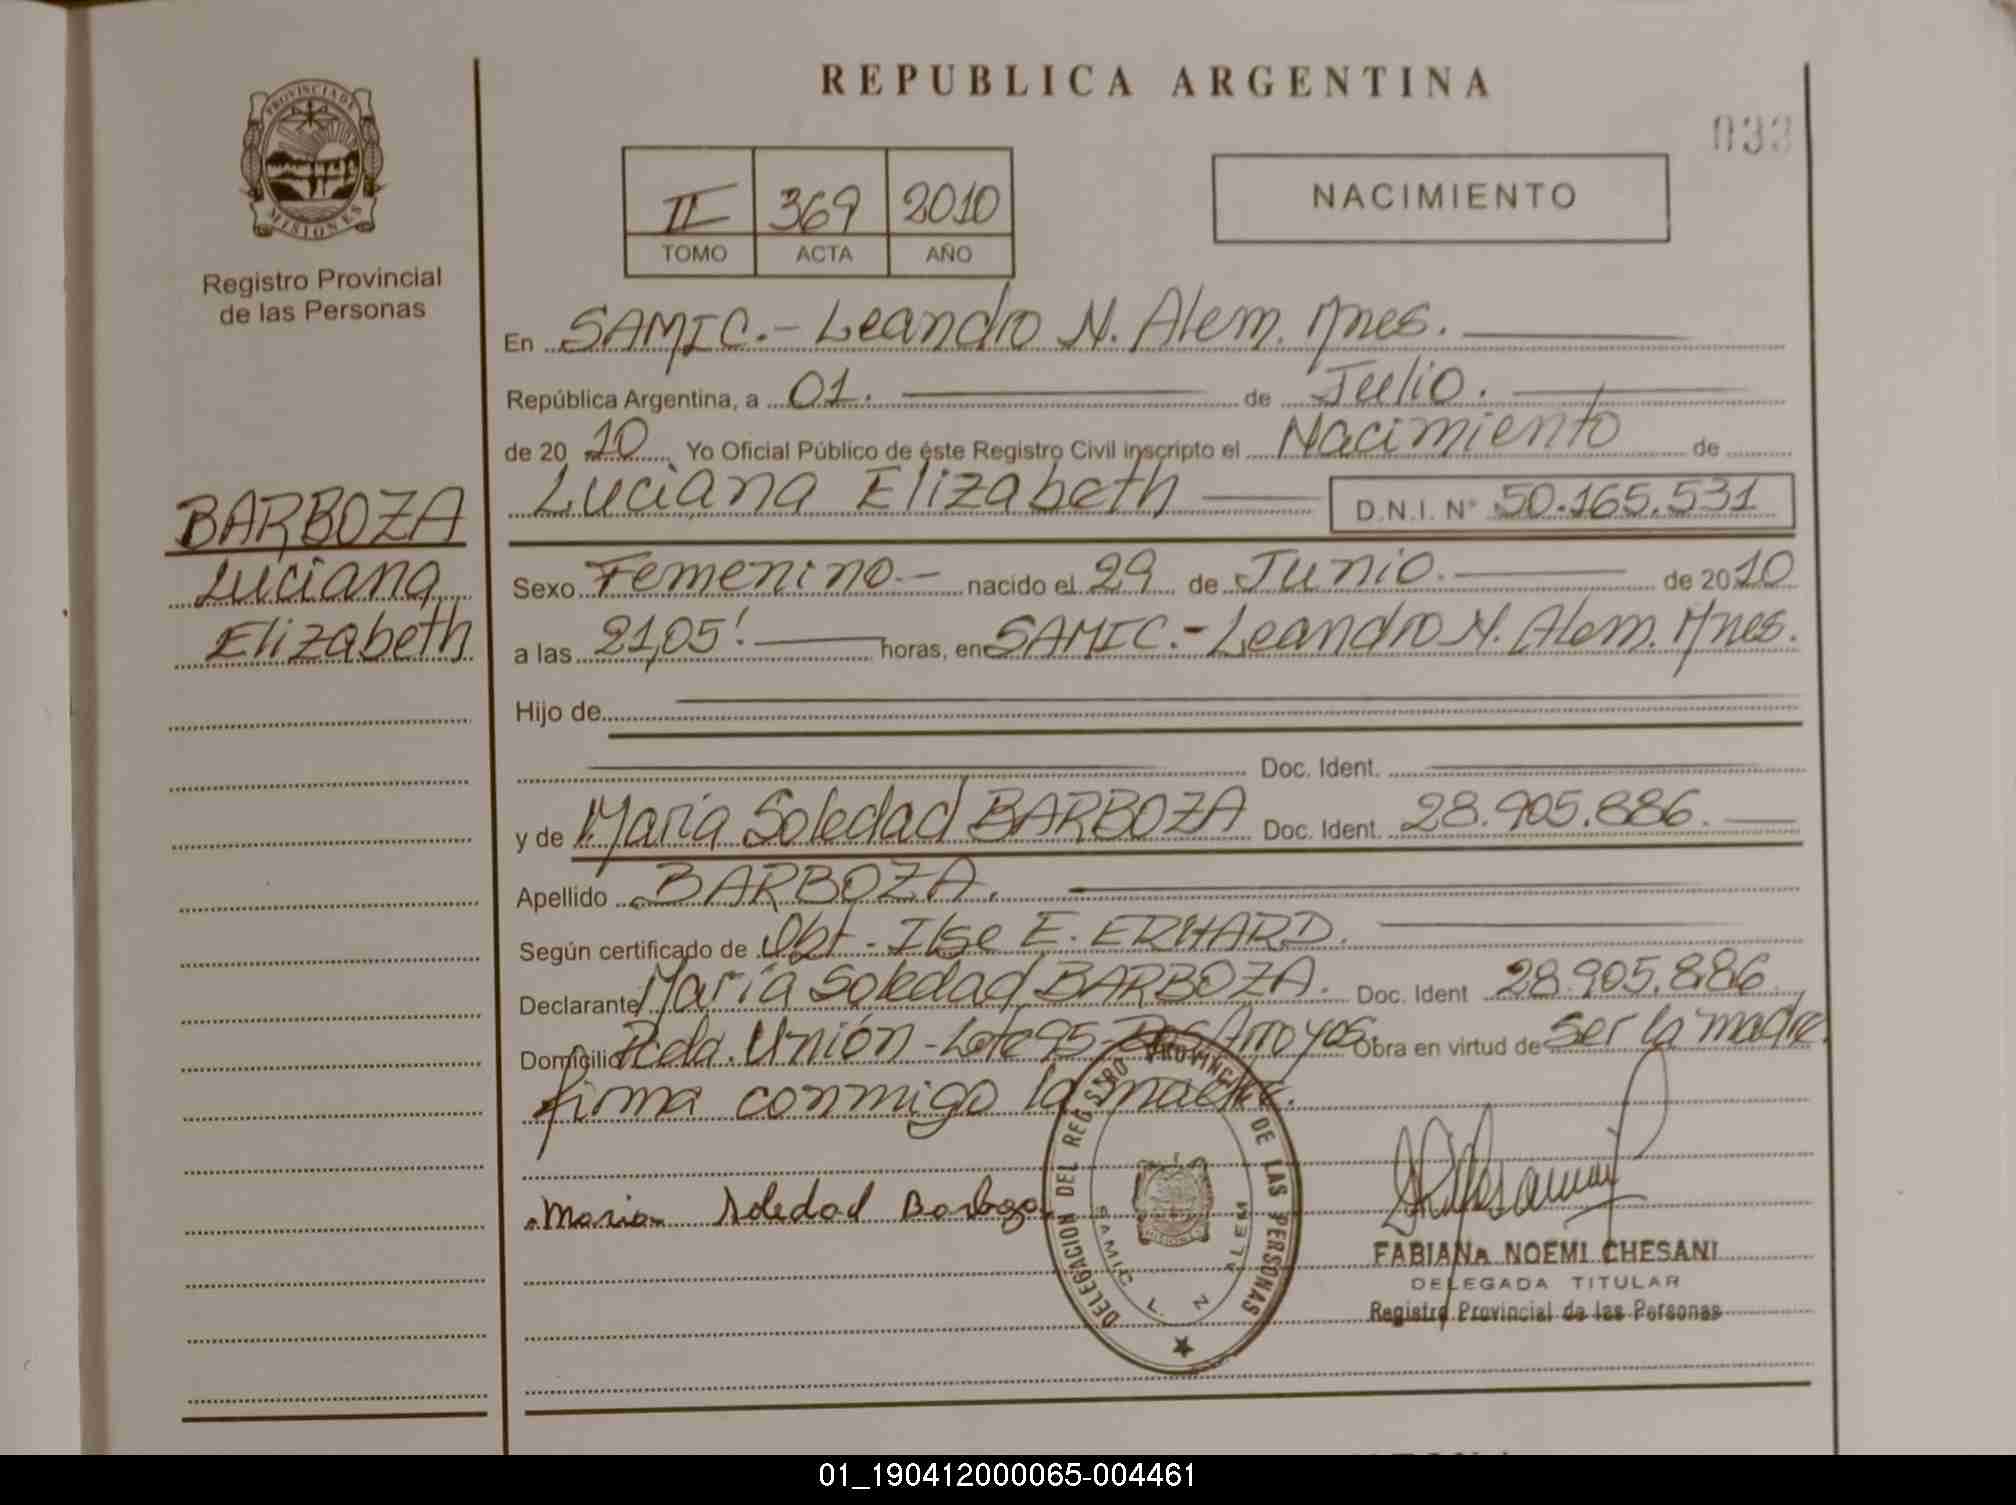 REPUBLICA ARGENTINA
033
PROVINCIA DE MISIONES
Registro Provincial
de las Personas
II 369 2010
TOMO ACTA AÑO
NACIMIENTO
En SAMIC.- Leandro N. Alem. Mnes.
República Argentina, a 01. de Julio.
de 20 10 Yo Oficial Público de éste Registro Civil inscripto el Nacimiento de
Luciana Elizabeth D.N.I. N° 50.165.531
BARBOZA
Luciana
Elizabeth
Sexo Femenino.- nacido el 29 de Junio. de 2010
a las 21,05! horas, en SAMIC.- Leandro N. Alem. Mnes.
Hijo de
Doc. Ident.
y de María Soledad BARBOZA Doc. Ident. 28.905.886.
Apellido BARBOZA.
Según certificado de Obt. Ilse E. ERHARD.
Declarante María Soledad BARBOZA. Doc. Ident 28.905.886
Domicilio Pcda. Unión - Lote 95 - Dos Arroyos. Obra en virtud de ser la madre.
firma conmigo la madre.
Maria Soledad Barboza
DELEGACION DEL REGISTRO PROVINCIAL DE LAS PERSONAS
SAMIC L. N ALEM
MISIONES
FABIANA NOEMI CHESANI
DELEGADA TITULAR
Registro Provincial de las Personas
01_190412000065-004461